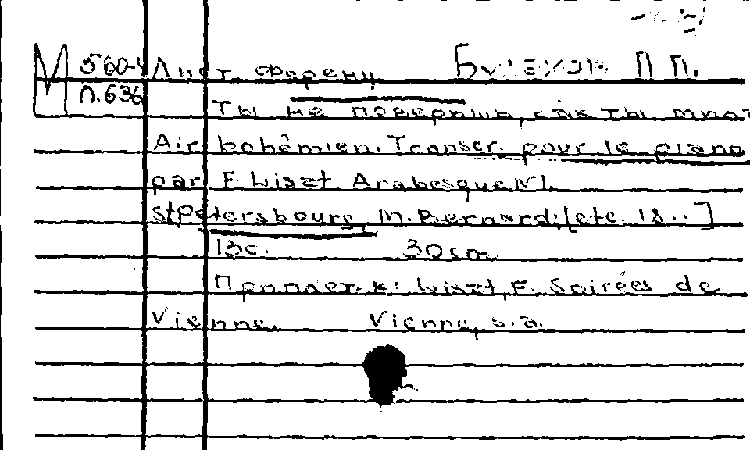 М 560-4 Лист Ференц Булахов П.П.
П.636
Ты не поверишь, как ты мила
Air bohêmien. Transcr. pour le piano
par F. Liszt. Arabesque №1.
StPetersbourg, M. Bernard; [etc. 18..]
13с. 30cm
Приплет. к: Liszt, F. Soirées de
Vienne. Vienne, s.a.